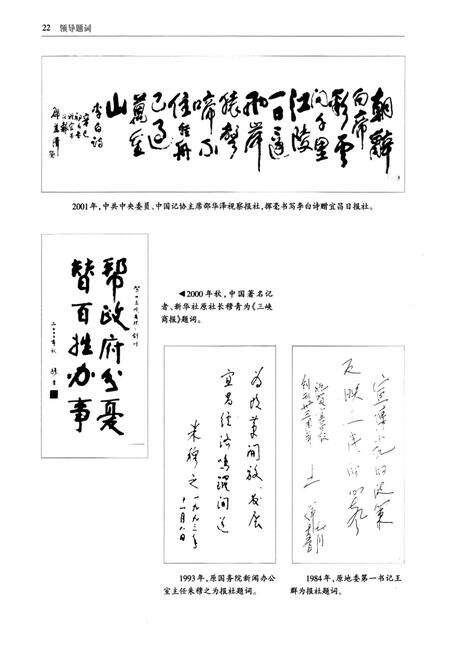 22 领导题词
朝辞
白帝
彩云
间千里
江陵
一日还
两岸
猿声
啼不
住轻舟
已过
万重
山
李白诗
2001年,中共中央委员、中国记协主席邵华泽视察报社,挥毫书写李白诗赠宜昌日报社。
帮政府分忧
替百姓办事
二〇〇〇年秋 穆青
◀2000年秋,中国著名记
者、新华社原社长穆青为《三峡
商报》题词。
为改革开放、发展
宜昌经济鸣锣开道
朱穆之 一九九三年
十一月八日
1993年,原国务院新闻办公
室主任朱穆之为报社题词。
宣传党的政策
反映人民的心声
1984年,原地委第一书记王
群为报社题词。